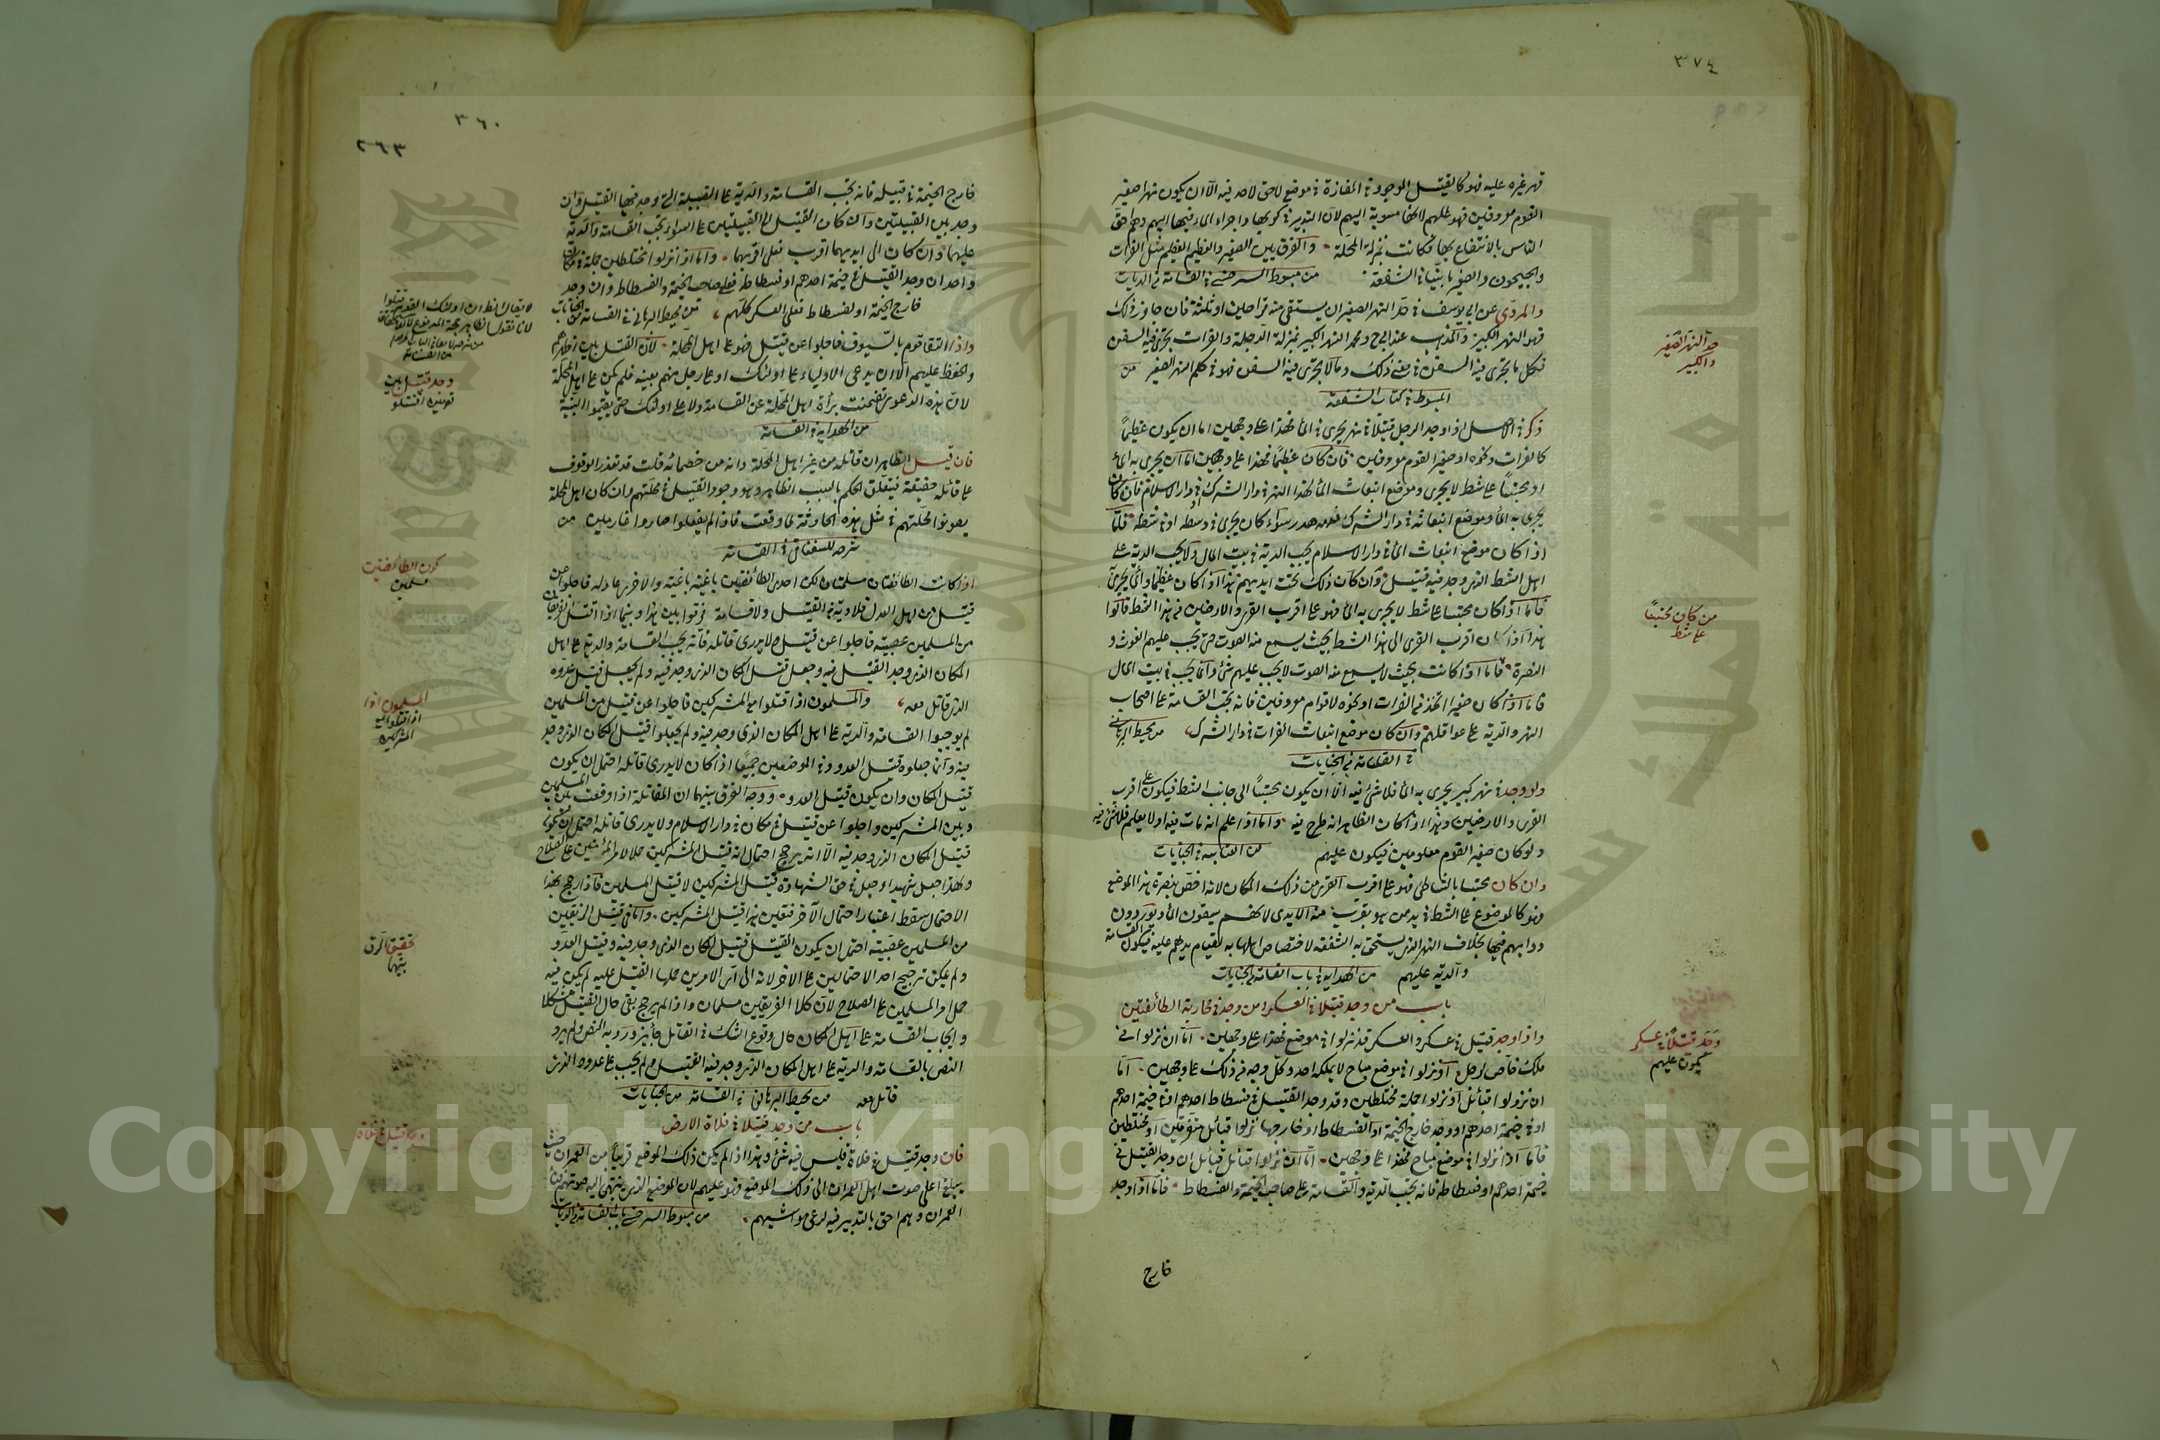 ٣٧٤
قهر غيره عليه فهو كالقتيل الموجود في المفازة في موضع لا حق لاحد فيه الا ان يكون نهرا صغير
القوم معروفين فهو عليهم لانها منسوبة اليهم لان التدبير في كريها واجراء الماء فيها اليهم وهم احق
الناس بالانتفاع بها فكانت بمنزلة المحلة والفرق بين الصغير والعظيم العظيم مثل الفرات
والجيحون والصغير ما بينا في الشفعة من مبسوط السرخسي في القسامة في الديات
والمروي عن ابي يوسف في حد النهر الصغير ان يستقى منه قراحين او ثلثة فان جاوز ذلك
فهو النهر الكبير والمذهب عند ابي ح ومحمد النهر الكبير بمنزلة الدجلة والفرات يجري فيه السفن
فكل ما يجري فيه السفن في معنى ذلك وما لا يجري فيه السفن فهو في حكم النهر الصغير من
المبسوط في كتاب الشفعة
ذكر في الاصل اذا وجد الرجل قتيلا في نهر يجري فيه الماء فهذا على وجهين اما ان يكون عظيما
كالفرات ونحوه او صغير القوم معروفين فان كان عظيما فهذا على وجهين اما ان يجري به الماء
او محتبسا على شط لا يجري وموضع انبعاث الماء لهذا النهر في دار الشرك او في دار الاسلام فان كان
يجري به الماء وموضع انبعاثه في دار الشرك فدمه هدر سواء كان يجري في وسطه او في شطه فاما
اذا كان موضع انبعاث الماء في دار الاسلام يجب الدية في بيت المال ولا يجب الدية على
اهل الشط الذي وجد فيه قتيل وان كان ذلك تحت ايديهم هذا اذا كان عظيما والماء يجري
فاما اذا كان محتبسا على شط لا يجري به الماء فهو على اقرب القرى والارضين في هذا الشط قالوا
هذا اذا كان اقرب القرى الى هذا الشط بحيث يسمع منه الصوت حتى يجب عليهم الغوث و
النصرة فاما اذا كانت بحيث لا يسمع منه الصوت لا يجب عليهم شيء وانما يجب في بيت المال
فاما اذا كان صغيرا اتخذ في الفرات او نحوه لاقوام معروفين فانه يجب القسامة على اصحاب
النهر والدية على عواقلهم وان كان موضع انبعاث الفرات في دار الشرك من محيط البرهاني
في القسامة في الجنايات
ولو وجد في نهر كبير يجري به الماء فلا شيء فيه الا ان يكون محتبسا الى جانب الشط فيكون على اقرب
القرى والارضين وهذا اذا كان الظاهر انه طرح فيه واما اذا علم انه مات فيه او لا يعلم فلا شيء فيه
ولو كان صغير القوم معلومين فيكون عليهم من العتابية في الجنايات
وان كان محتبسا بالشاطي فهو على اقرب القرى من ذلك المكان لانه اخص بنصرة هذا الموضع
فهو كالموضوع على الشط في يد من هو بقرب منه الا يرى انهم يستقون الماء ويوردون
دوابهم فيها بخلاف النهر الذي يستحق به الشفعة لاختصاص اهلها به لقيام يدهم عليه فيكون القسامة
والدية عليهم من الهداية في باب القسامة في الجنايات
باب من وجد قتيلا في العسكر او من وجد في محاربة الطائفتين
واذا وجد قتيل في عسكر والعسكر قد نزلوا في موضع فهذا على وجهين اما ان نزلوا في
ملك خاص لرجل او نزلوا في موضع مباح لا يملكه احد وكل وجه في ذلك على وجهين اما
ان نزلوا قبائل او نزلوا جملة مختلطين وقد وجد القتيل في فسطاط احدهم او في خيمة احدهم
او في خيمة احدهم او وجد خارج الخيمة او الفسطاط او خارجها نزلوا قبائل متفرقين او مختلطين
فاما اذا نزلوا في موضع مباح فهذا على وجهين اما ان نزلوا قبائل قبائل ان وجد القتيل في
خيمة احدهم او فسطاطه فانه يجب الدية والقسامة على صاحب الخيمة والفسطاط فاما اذا وجد
خارج
حد النهر الصغير
والكبير
من كان محتبسا
على شط
وجد قتيلا في عسكر
يكون عليهم
٣٦٠
٣٦٣
خارج الخيمة في قبيلة فانه يجب القسامة والدية على القبيلة التي وجد فيها القتيل وان
وجد بين القبيلتين وان كان القتيل الى القبيلتين على السواء يجب القسامة والدية
عليهما وان كان الى ايديهما اقرب فعلى اقربهما واما اذا نزلوا مختلطين جملة في مكان
واحد ان وجد القتيل في خيمة احدهم او فسطاطه فعلى صاحب الخيمة والفسطاط وان وجد
خارج الخيمة او الفسطاط فعلى العسكر كلهم من محيط البرهاني في القسامة من الجنايات
واذا التقا قوم بالسيوف فاجلوا عن قتيل فهو على اهل المحلة لان القتل بين اظهرهم
والحفظ عليهم الا ان يدعي الاولياء على اولئك او على رجل منهم بعينه فلم يكن على اهل المحلة
لان هذه الدعوى تضمنت براءة اهل المحلة عن القسامة ولا على اولئك حتى يقيموا البينة
من الهداية في القسامة
فان قيل الظاهر ان قاتله من غير اهل المحلة وانه من خصمائه قلت قد تعذر الوقوف
على قاتله حقيقة فيتعلق الحكم بالسبب الظاهر وهو وجود القتيل في محلتهم وان كان اهل المحلة
يصونوا محلتهم في مثل هذه الحادثة لما وقعت فاذا لم يفعلوا صاروا غارمين من
شرحه للسغناقي في القسامة
اذا كانت الطائفتان مسلمتان لكن احدى الطائفتين باغية والاخرى عادلة فاجلوا عن
قتيل من اهل العدل فلا دية في القتيل ولا قسامة فرقوا بين هذا وبينما اذا اقتتل فريقان
من المسلمين عصبية فاجلوا عن قتيل لا يدرى قاتله فانه يجب القسامة والدية على اهل
المكان الذي وجد القتيل فيه وجعل قتيل المكان الذي وجد فيه ولم يجعل قتيل عدوه
الذي قاتل معه والمسلمون اذا قتلوا مع المشركين فاجلوا عن قتيل من المسلمين
لم يوجبوا القسامة والدية على اهل المكان الذي وجد فيه ولم يجعلوا قتيل المكان الذي وجد
فيه وانما جعلوه قتيل العدو وفي الموضعين جميعا اذا كان لا يدرى قاتله احتمل ان يكون
قتيل المكان وان يكون قتيل العدو ووجه الفرق بينهما ان المقاتلة اذا وقعت بين المسلمين
وبين المشركين واجلوا عن قتيل في مكان في دار الاسلام ولا يدرى قاتله احتمل ان يكون
قتيل المكان الذي وجد فيه الا انه يرجح احتمال انه قتيل المشركين حملا لامر المؤمنين على الصلاح
ولهذا جعل شهيدا وجعل في حق الشهادة قتيل المشركين لا قتيل المسلمين فاذا رجح هذا
الاحتمال سقط اعتبار احتمال الآخر فتعين هذا قتيل المشركين واما في قتيل الفريقين
من المسلمين عصبية احتمل ان يكون القتيل قتيل المكان الذي وجد فيه وقتيل العدو
ولم يمكن ترجيح احد الاحتمالين على الاخر لانه الى اي الامرين حملنا القتيل عليه لم يكن فيه
حمل امر المسلمين على الصلاح لان كلا الفريقين مسلمان واذا لم يرجح بقي حال القتيل مشكلا
وايجاب القسامة على اهل المكان حال وقوع الشك في القاتل جائز ورد به النص ولم يرد
النص بالقسامة والدية على اهل المكان الذي وجد فيه القتيل ولم يجب على عدوه الذي
قاتل معه من محيط البرهاني في القسامة من الجنايات
باب من وجد قتيلا في فلاة الارض
فان وجد قتيل في فلاة فليس فيه شيء وهذا اذا لم يكن ذلك الموضع قريبا من العمران حيث
يبلغ اعلى صوت اهل العمران الى ذلك الموضع فهو عليهم لان الموضع الذي ينتهي اليه صوتهم فناء
العمران وهم احق بالتدبير فيه لرعي مواشيهم من مبسوط السرخسي باب القسامة في الديات
وجد قتيل بين
قومين اقتتلوا
كون الطائفتين
مسلمين
المسلمون اذا
اذا قتلوا مع
المشركين
تحقيق الفرق
بينهما
وجد قتيل في فلاة
Copyright © King Saud University